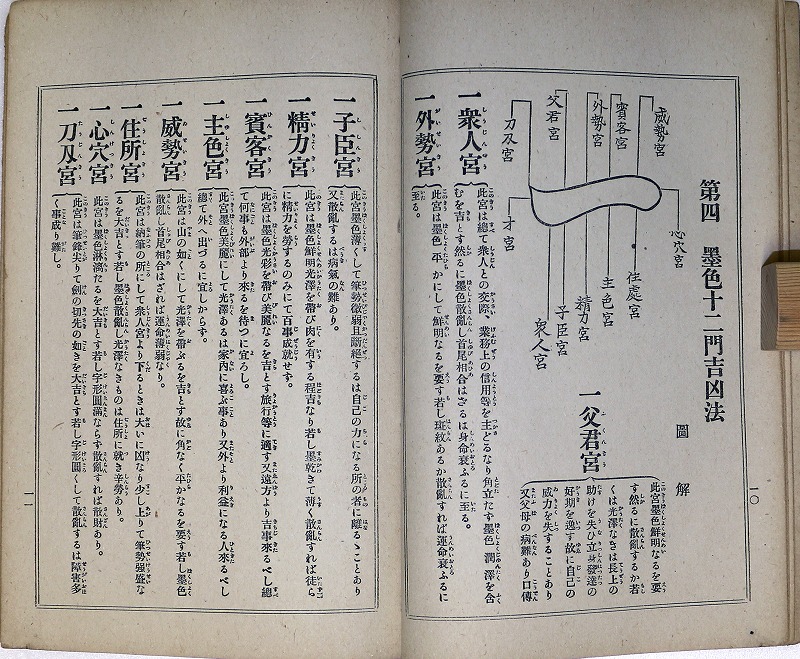 第四　墨色十二門吉凶法
圖解
威勢宮
賓客宮
外勢宮
父君宮
刀及宮
心穴宮
住處宮
主色宮
精力宮
子臣宮
衆人宮
才宮
一父君宮
此宮墨色鮮明なるを要
す然るに散亂するか若
くは光澤なきは長上の
助けを失ひ立身發達の
好期を逸す故に自己の
威力を失することあり
又父母の病難あり口傳
一衆人宮
此宮は總て衆人との交際、業務上の信用等を主どるなり角立たず墨色潤澤を含
むを吉とす然るに墨色散亂し首尾相合はざるは身命衰ふるに至る。
一外勢宮
此宮は墨色平かにして鮮明なるを要す若し斑紋あるか散亂すれば運命衰ふるに
至る。
一〇
一子臣宮
此宮墨色薄くして筆勢微弱且斷絕するは自己の力になる所の者に離るゝことあり
又散亂するは病氣の難あり。
一精力宮
此宮は墨色鮮明光澤を帶び肉を有する程吉なり若し墨乾きて薄く散亂すれば徒ら
に精力を勞するのみにて百事成就せず。
一賓客宮
此宮は墨色光彩を帶び美麗なるを吉とす旅行等に適す又遠方より吉事來るべし總
て何事も外部より來るを待つに宜ろし。
一主色宮
此宮墨色美麗にして光澤あるは家內に喜ぶ事あり又外より利益になる人來るべし
總て外へ出づるに宜しからず。
一威勢宮
此宮は山の如くにして光澤を帶ぶるを吉とす故に角なく平かなるを要す若し墨色
散亂し首尾相合はざれば運命薄弱なり。
一住所宮
此宮は納筆の所にして衆人宮より下るときは大いに凶なり少し上りて筆勢强盛な
るを大吉とす若し墨色散亂し光澤なきものは住所に就き辛勞あり。
一心穴宮
此宮は墨色淋漓たるを大吉とす若し字形圓滿ならず散亂すれば散財あり。
一刀及宮
此宮は筆鋒尖りて劍の切先の如きを大吉とす若し字形圓くして散亂するは障害多
く事成り難し。
一一